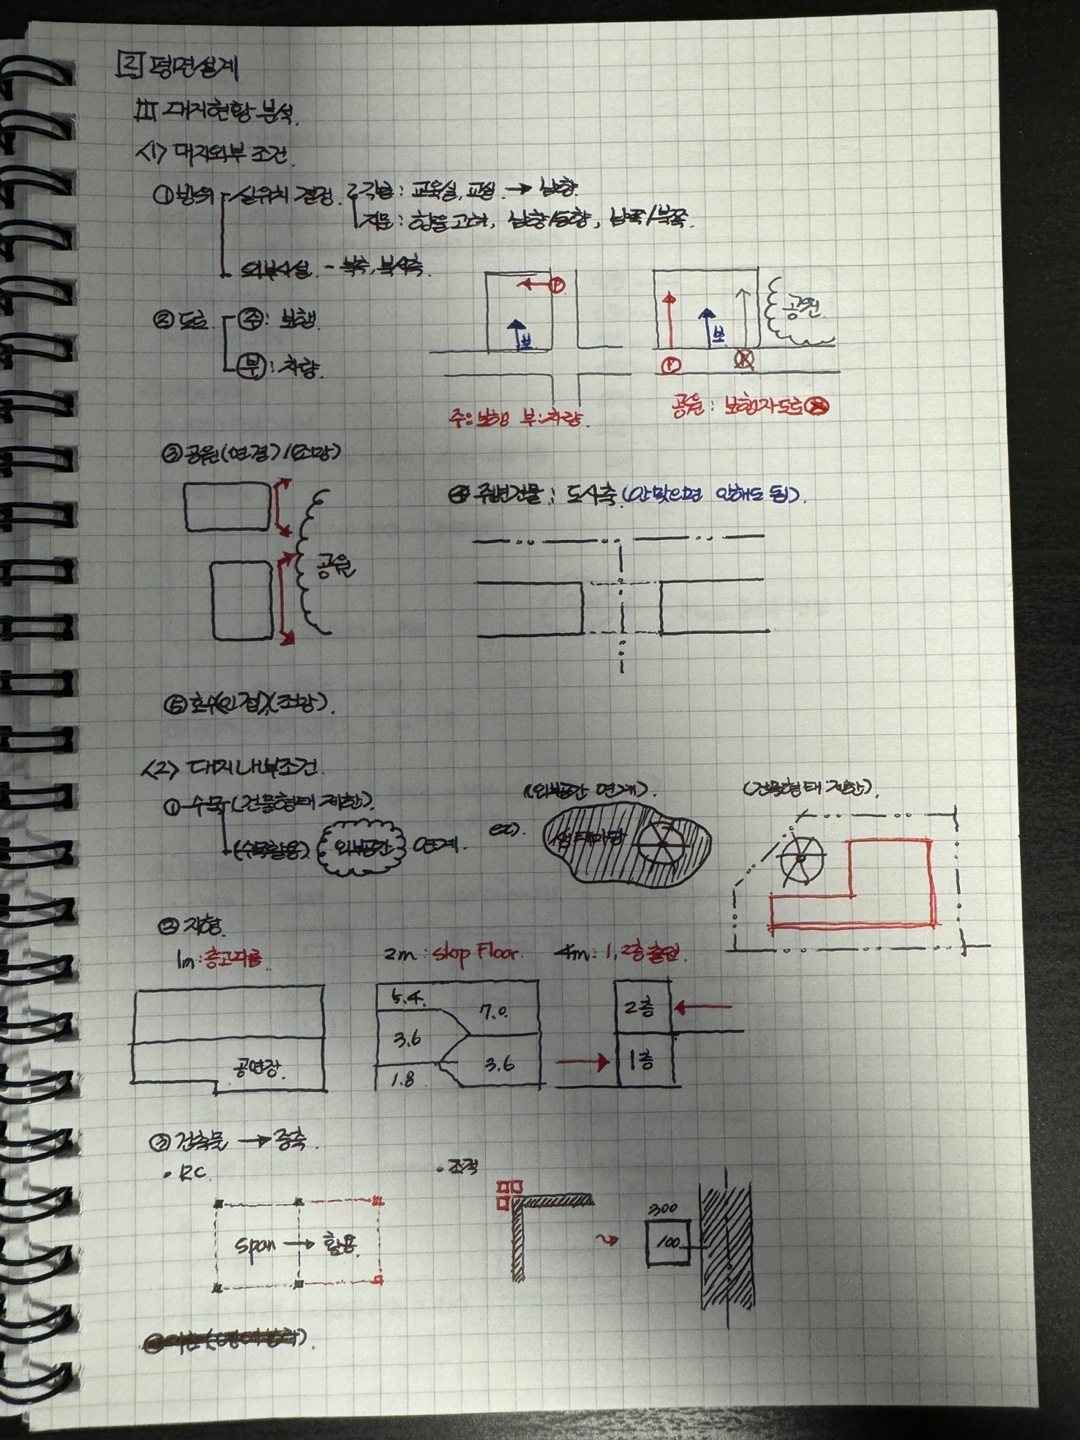 2 평면설계
[1] 대지현황분석.
<1> 대지외부조건.
① 방위 실위치 결정. 각론: 교육실, 교실 → 남향.
지문: 향을 고려, 남향/동향, 남쪽/북쪽.
외부시설. - 북측, 북서측.
② 도로 주: 보행.
부: 차량.
P
보
P
보
공원.
주:보행 부:차량.
공원: 보행자도로
③ 공원(연결)/(조망)
공원
④ 주변건물: 도시축.(안맞으면 안해도 됨).
⑤ 호수(인접)(조망).
<2> 대지내부조건.
① 수목(건물형태 제한).
(수목활용) 외부공간 연계.
ex).
(외부공간 연계).
생태마당
(건물형태 제한).
② 지형.
1m:층고조절
2m: skip Floor.
4m: 1,2층출입.
공연장.
5.4.
3.6
1.8
7.0.
3.6
2층
1층
③ 건축물 → 증축.
• RC.
span → 활용.
• 조적
300
100